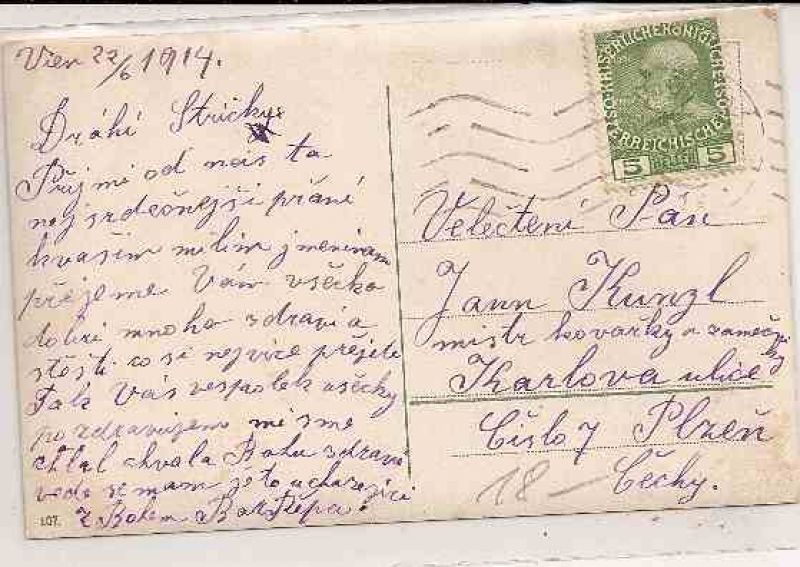 Vien 22/6 1914.
Dráhí Stričky
Přijmi od nás ta
nejsrdečnejši přání
kvašim milim jmeninam
přejeme Vám všecko
dobrí mnoho zdraví a
stěsti co si nejvice přejete
Tak Vás vespolek všecky
pozdravujem mi sme
chvala Bohu zdraví
vede se nam
z Bohem
107.
KAISERLICHE KÖNIGLICHE ÖSTERREICHISCHE
5 HELLER 5
Velečtení Pán
Jann Kunzl
mistr kovařky a zamečnicky
Karlova ulice
Číslo 7 Plzeň
Čechy.
18 —